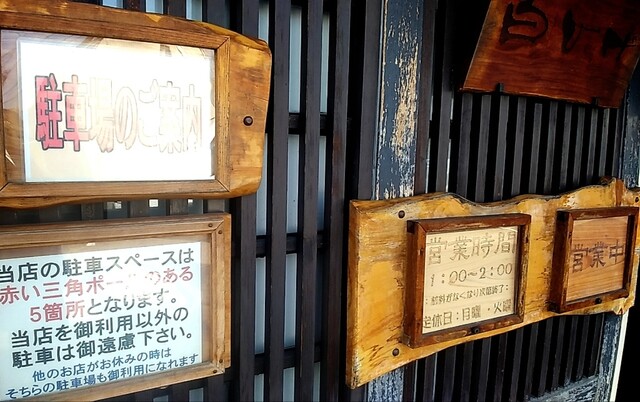 駐車場のご案内
当店の駐車スペースは
赤い三角ポールのある
5箇所となります。
当店を御利用以外の
駐車は御遠慮下さい。
他のお店がお休みの時は
そちらの駐車場も御利用になれます
営業時間
1:00~2:00
がなくなり次第終了:
定休日:月曜・火曜
営業中